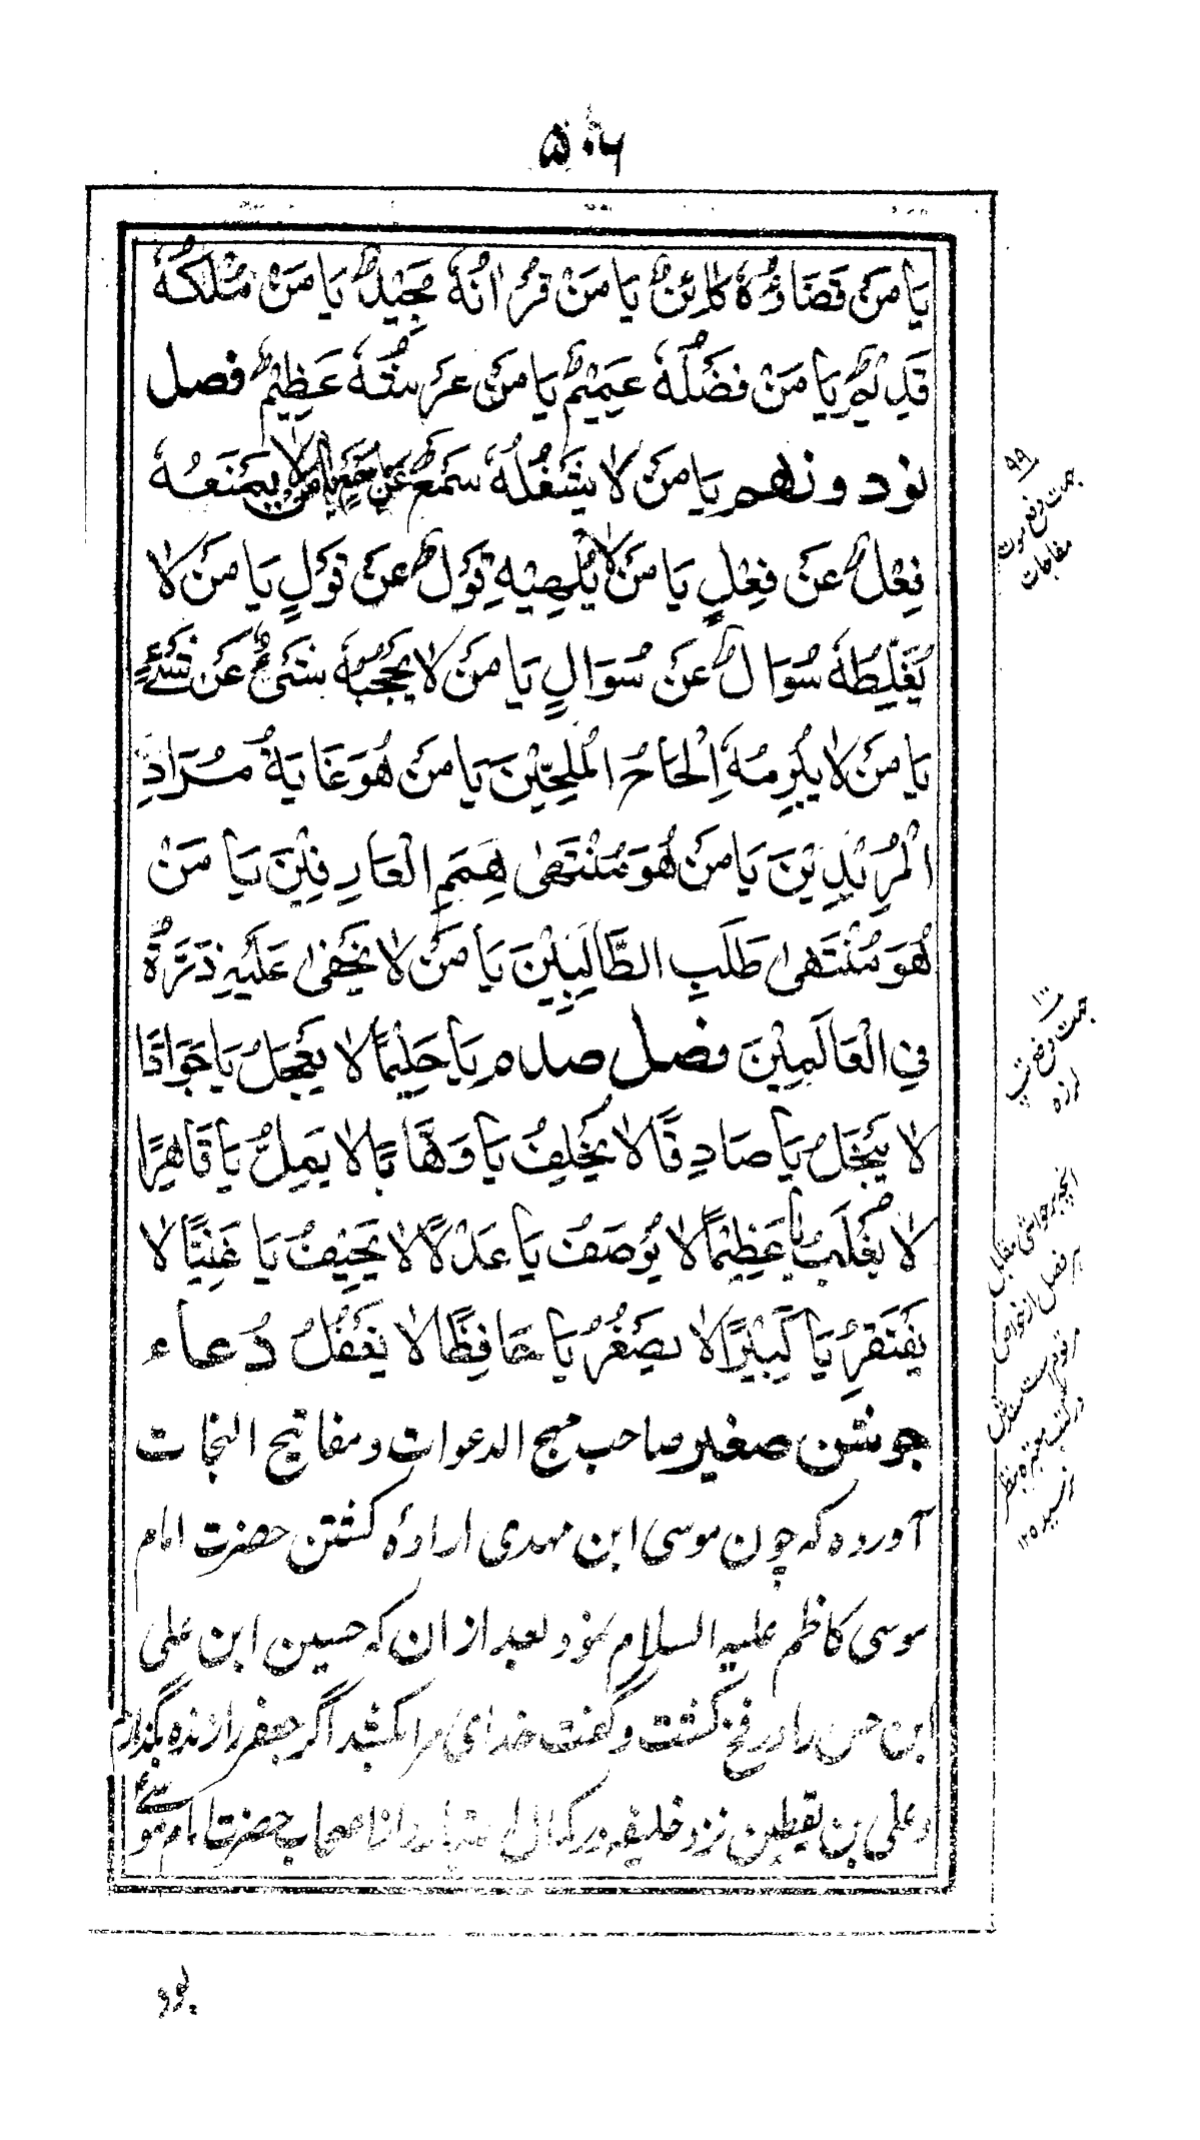 ۵۰۶
يَا مَنْ قَضَاؤُهٗ كَائِنٌ يَا مَنْ قُرْاٰنُهٗ مَجِيْدٌ يَا مَنْ مُلْكُهٗ
قَدِيْمٌ يَا مَنْ فَضْلُهٗ عَمِيْمٌ يَا مَنْ عَرْشُهٗ عَظِيْمٌ فصل
نود و نهم يَا مَنْ لَا يَشْغَلُهٗ سَمْعٌ عَنْ سَمْعٍ يَا مَنْ لَا يَمْنَعُهٗ
فِعْلٌ عَنْ فِعْلٍ يَا مَنْ لَا يُلْهِيْهِ قَوْلٌ عَنْ قَوْلٍ يَا مَنْ لَا
يُغَلِّطُهٗ سُوَالٌ عَنْ سُوَالٍ يَا مَنْ لَا يَحْجُبُهٗ شَیْءٌ عَنْ شَیْءٍ
يَا مَنْ لَا يُبْرِمُهٗ اِلْحَاحُ الْمُلِحِّيْنَ يَا مَنْ هُوَ غَايَةُ مُرَادِ
الْمُرِيْدِيْنَ يَا مَنْ هُوَ مُنْتَهٰى هِمَمِ الْعَارِفِيْنَ يَا مَنْ
هُوَ مُنْتَهٰى طَلَبِ الطَّالِبِيْنَ يَا مَنْ لَا يَخْفٰى عَلَيْهِ ذَرَّةٌ
فِي الْعَالَمِيْنَ فصل صدم يَا حَلِيْمًا لَا يَعْجَلُ يَا جَوَادًا
لَا يَبْخَلُ يَا صَادِقًا لَا يُخْلِفُ يَا وَهَّابًا لَا يَمِلُّ يَا قَاهِرًا
لَا يُغْلَبُ يَا عَظِيْمًا لَا يُوْصَفُ يَا عَدْلًا لَا يَحِيْفُ يَا غَنِيًّا لَا
يَفْتَقِرُ يَا كَبِيْرًا لَا يَصْغُرُ يَا حَافِظًا لَا يَغْفُلُ دُعاء
جوشن صغير صاحب مہج الدعوات و مفاتیح النجات
آورده که چون موسی ابن مہدی ارادۀ کشتن حضرت امام
موسی کاظم علیہ السلام نمود بعد از ان که حسین ابن علی
ابن حسن را در فخ کشت و گفت خدای مرا بکشد اگر جعفر را زنده بگذارم
و علی بن یقطین نزد خلیفه در کمال اصحاب حضرت امام موسی
۹۹
جهت دفع موت
مفاجات
۱۰۰
جهت دفع تپ
لرزه
انچه بر حواشی مقابل
هر فصل از خواص
مرقوم ست سندش
در کتب معتبره بنظر
نرسید ۱۲